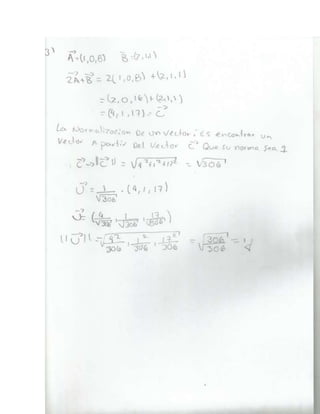 3)
A=(1,0,8) B=(2,1,1)
2A+B = 2(1,0,8) + (2,1,1)
= (2,0,16) + (2,1,1)
= (4,1,17) = C
La Normalizacion De un vector, es encontrar un
vector A partir Del Vector C Que su norma sea 1
C → ||C|| = √4²+1²+17² = √306
U = 1/√306 · (4,1,17)
U = (4/√306, 1/√306, 17/√306)
||U|| = √4²/306, 1²/306, 17²/306 = √306/306 = 1